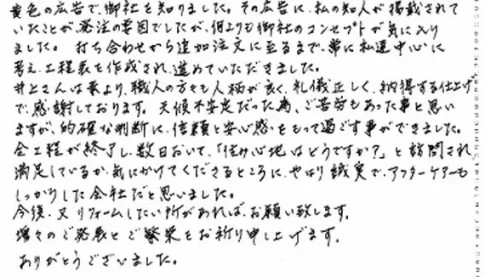 黄色の広告で、御社を知りました。その広告に、私の知人が掲載されて
いたことが、発注の要因でしたが、何よりも御社のコンセプトが気に入り
ました。 打ち合わせから追加注文に至るまで、常に私達中心に
考え、工程表を作成され、進めていただきました。
井上さんは素より、職人の方々も人柄が良く、礼儀正しく、納得する仕上げ
で、感謝しております。 天候不安定だった為、ご苦労もあった事と思い
ますが、的確な判断に、信頼と安心感をもって過ごす事ができました。
全工程が終了し、数日おいて、「住み心地はどうですか?」と訪問され
満足しているか、気にかけてくださるところに、やはり誠実で、アフターケアーも
しっかりした会社だと思いました。
今後、又リフォームしたい所があれば、お願い致します。
増々のご発展とご繁栄をお祈り申し上げます。
ありがとうございました。